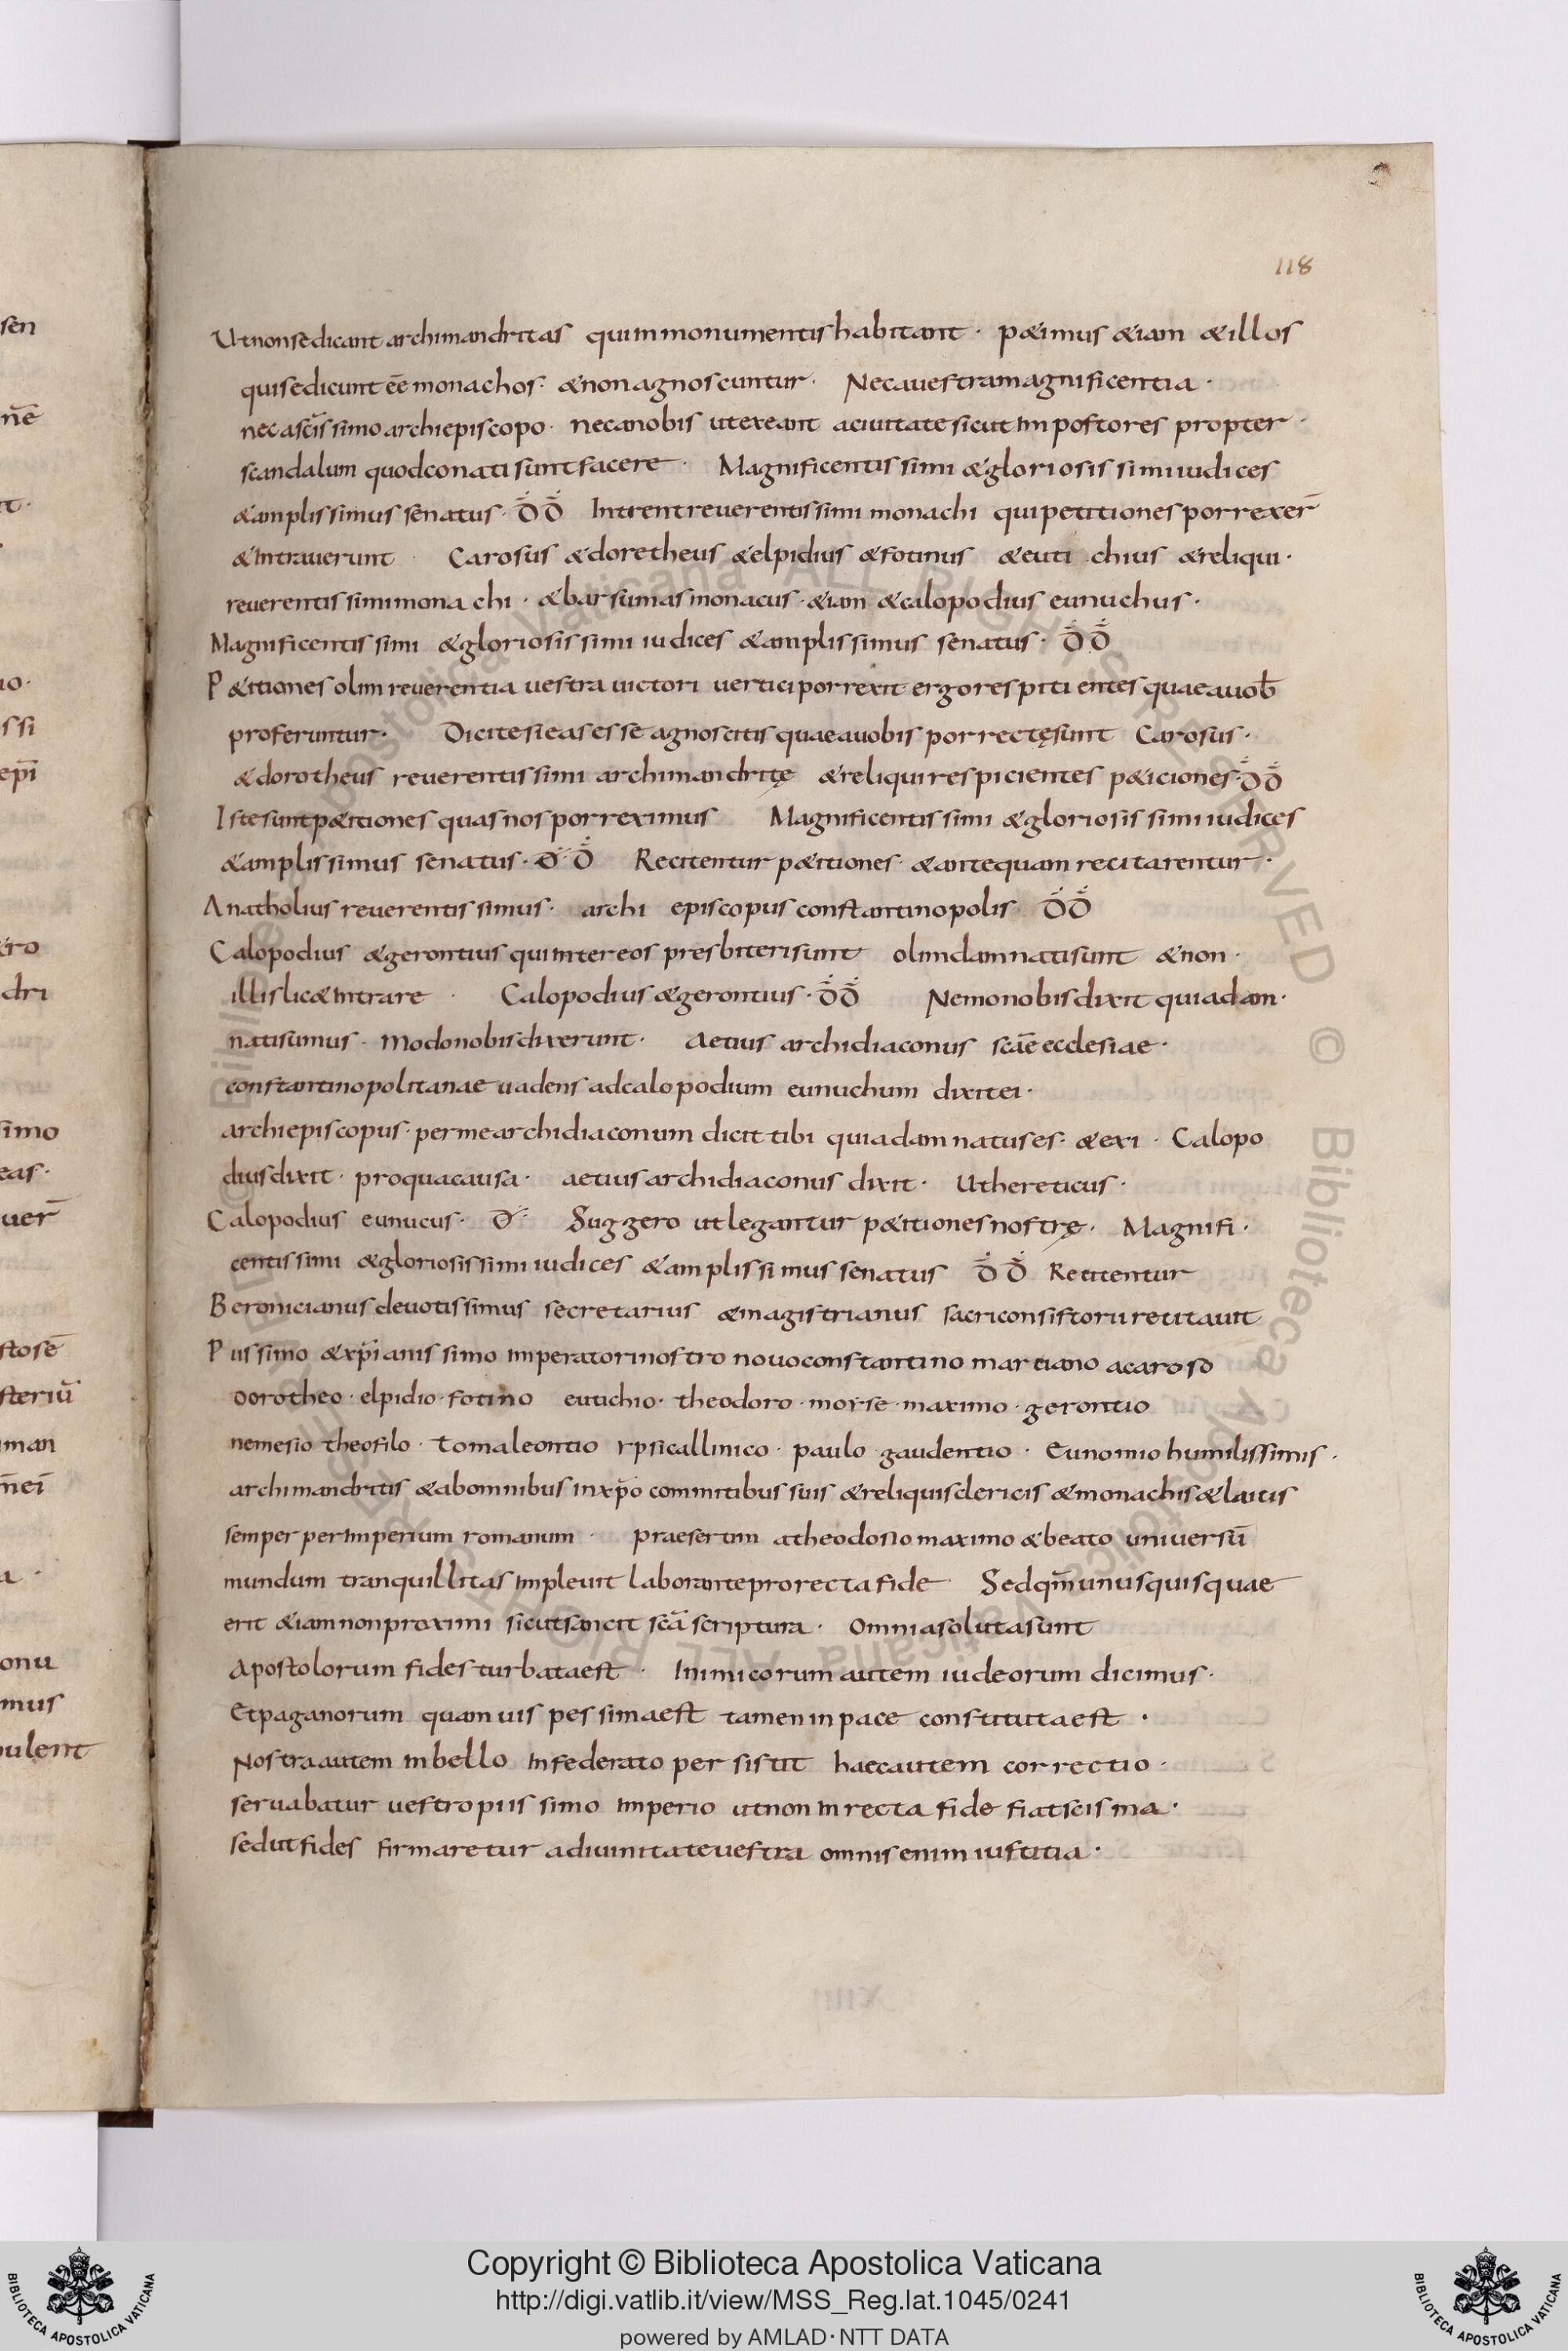 118
Ut non se dicant archimandritas qui in monumentis habitant · p&imus &iam & illos
qui se dicunt eē monachos · & non agnoscuntur · Nec a uestra magnificentia ·
nec a sc̄issimo archiepiscopo · nec a nobis ut exeant a ciuitate sicut impostores propter ·
scandalum quod conati sunt facere · Magnificentissimi & gloriosissimi iudices
& amplissimus senatus · đđ Intrent reuerentissimi monachi qui petitiones porrexer̄
& intrauerunt · Carosus & doretheus & elpidius & fotinus & euti chius & reliqui ·
reuerentissimi mona chi · & barsumas monacus · &iam & calopodius eunuchus ·
Magnificentissimi & gloriosissimi iudices & amplissimus senatus · đđ
P&itiones olim reuerentia uestra uictori uertici porrexit ergo respiti entes quae a uob̄
proferuntur · Dicite si eas esse agnoscitis quae a uobis porrectę sunt Carosus ·
& dorotheus reuerentissimi archimandritę & reliqui respicientes p&iciones · đđ
Iste sunt p&itiones quas nos porreximus Magnificentissimi & gloriosissimi iudices
& amplissimus senatus · đđ Recitentur p&itiones · & antequam recitarentur ·
Anatholius reuerentissimus · archi episcopus constantinopolis · đđ
Calopodius & gerontius qui inter eos presbiteri sunt olim damnati sunt & non ·
illis lic& intrare · Calopodius & gerontius · đđ Nemo nobis dixit quia dam ·
nati sumus · modo nobis dixerunt · Aetius archidiaconus scāe ecclesiae ·
constantinopolitanae uadens ad calopodium eunuchum dixit ei ·
archiepiscopus · per me archidiaconum dicit tibi quia damnatus es · & exi · Calopo
dius dixit · pro qua causa · aetius archidiaconus dixit · Ut hereticus ·
Calopodius eunucus · đ Suggero ut legantur p&itiones nostrę · Magnifi ·
centissimi & gloriosissimi iudices & amplissimus senatus đđ Recitentur
Beronicianus deuotissimus secretarius & magistrianus sacri consistorii retitauit
Piissimo & xp̄ianissimo imperatori nostro nouo constantino martiano a caroso
dorotheo · elpidio · fotino eutichio · theodoro · moyse · maximo · gerontio
nemesio theofilo · toma leontio ypsi callinico · paulo gaudentio · Eunomio humilissimis ·
archimandritis & ab omnibus in xp̄o commitibus suis & reliquis clericis & monachis & laitis
semper per imperium romanum · praesertim a theodosio maximo & beato uniuersū
mundum tranquillitas impleuit laborante pro recta fide Sed qm̄ unusquisquae
erit &iam non proximi sicut sancit scā scriptura · Omnia soluta sunt
Apostolorum fides turbata est · Inimicorum autem iudeorum dicimus ·
Et paganorum quamuis pessima est tamen in pace constituta est ·
Nostra autem in bello infederato persistit haec autem correctio ·
seruabatur uestro piissimo imperio ut non in recta fide fiat scisma ·
sed ut fides firmaretur a diuinitate uestra omnis enim iustitia ·
Copyright © Biblioteca Apostolica Vaticana
http://digi.vatlib.it/view/MSS_Reg.lat.1045/0241
powered by AMLAD · NTT DATA